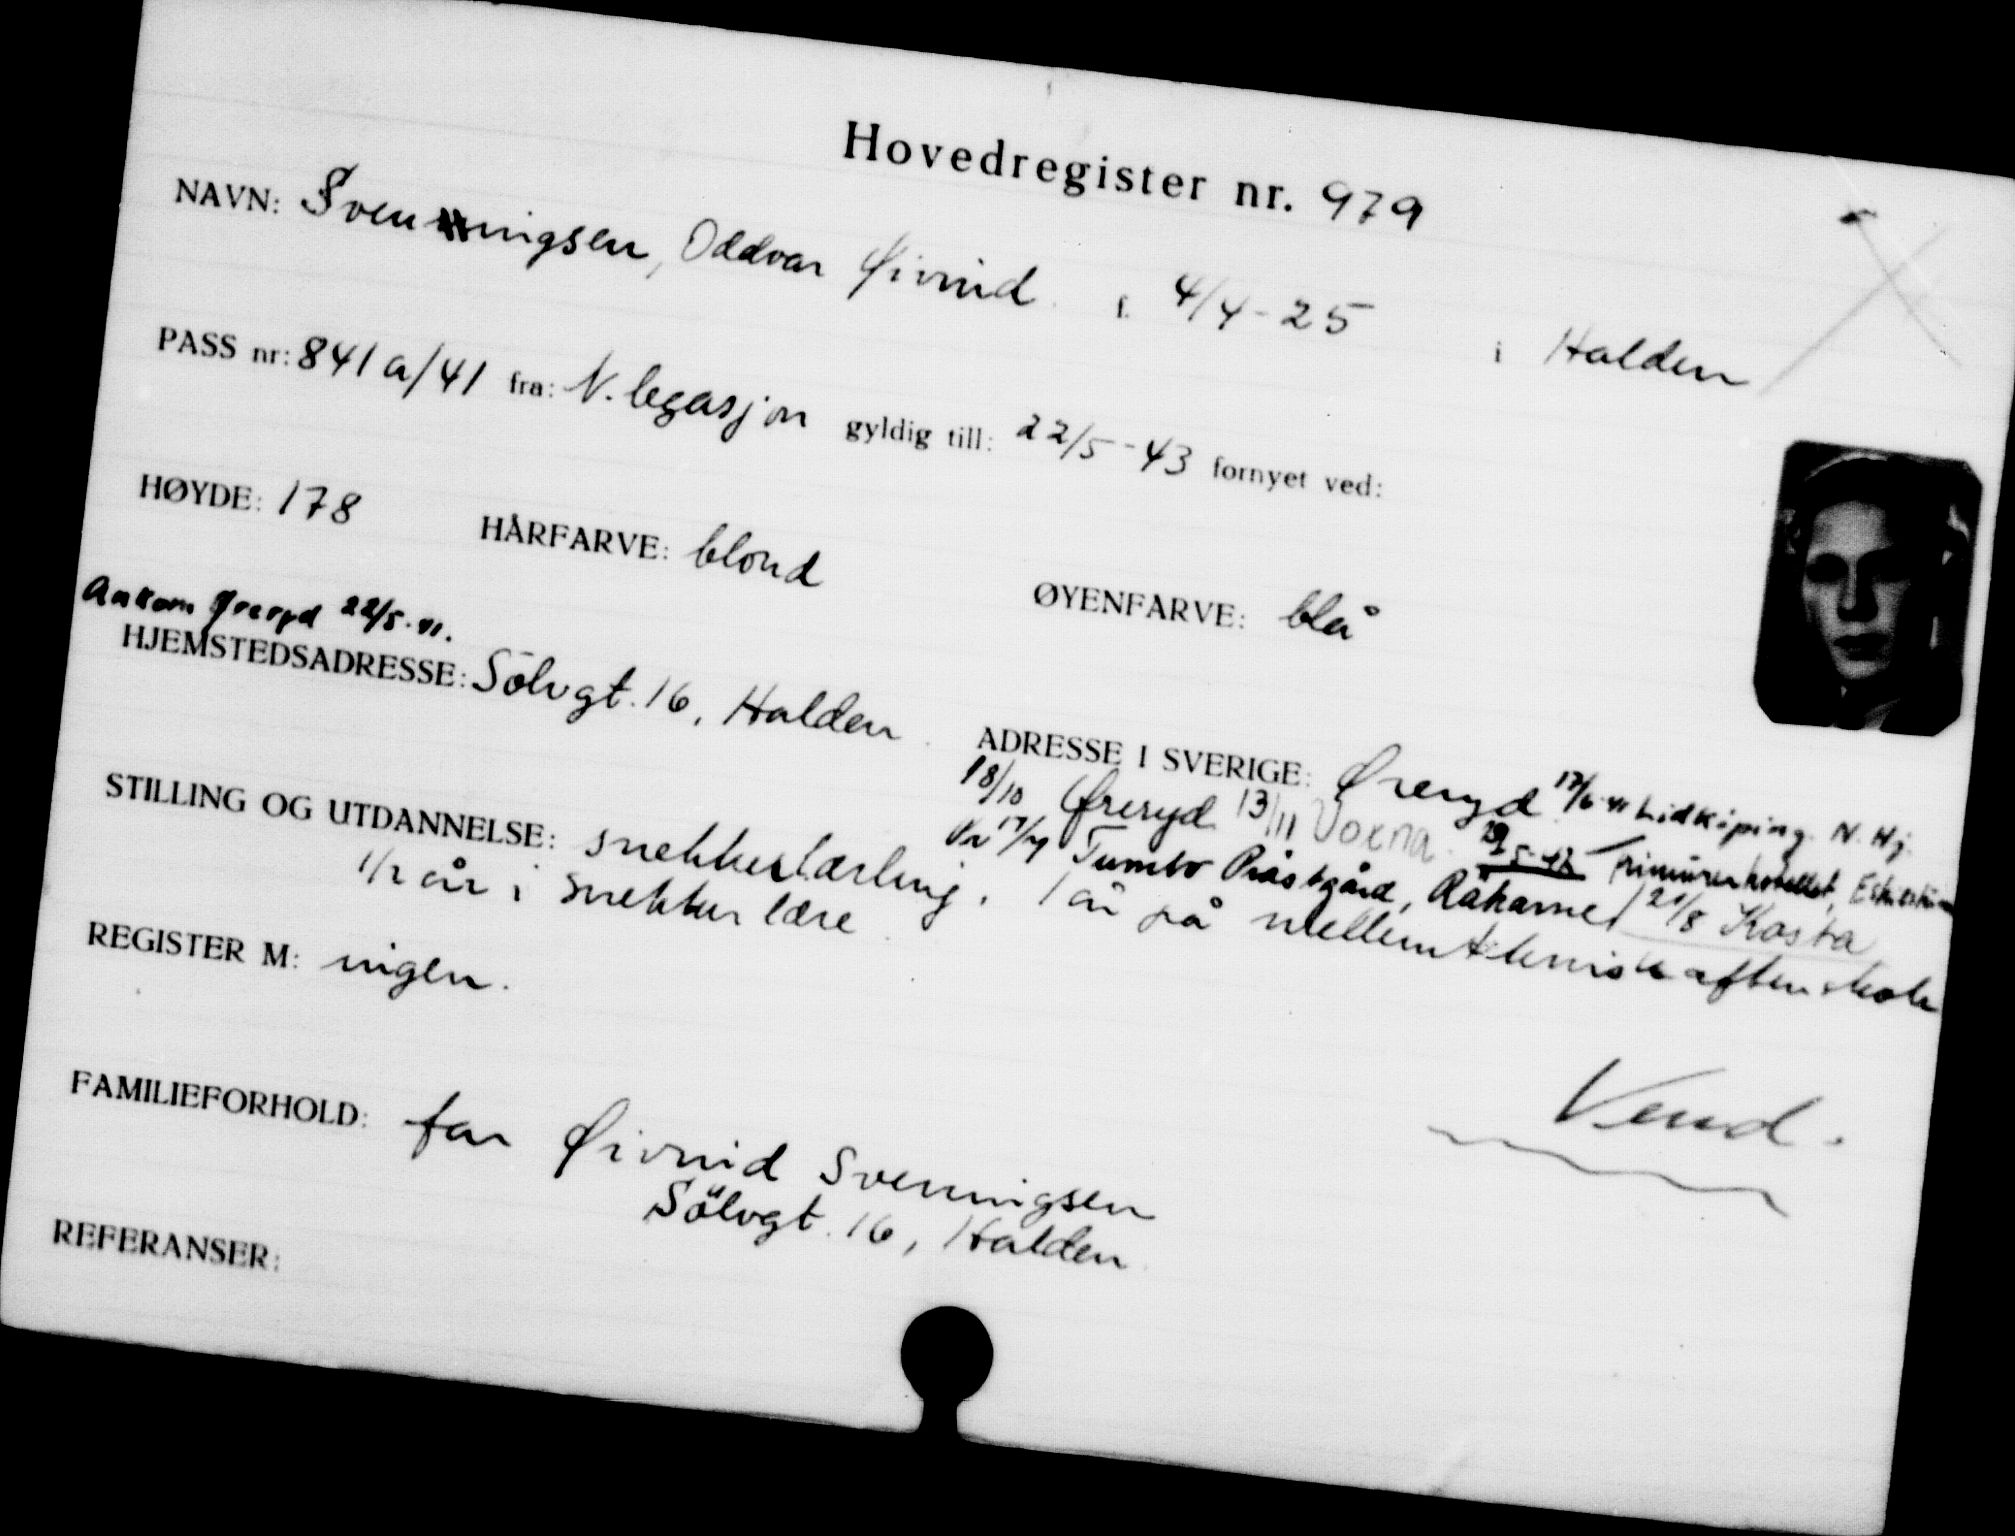 Hovedregister nr. 979
NAVN: Svenningsen, Oddvar Øivind f. 4/4-25 i Halden
PASS nr: 841a/41 fra: N. legasjon gyldig till: 22/5-43 fornyet ved:
HØYDE: 178 HÅRFARVE: blond ØYENFARVE: blå
Ankom Øreryd 22/5-41.
HJEMSTEDSADRESSE: Sölvgt. 16, Halden. ADRESSE I SVERIGE: Øreryd 17/6-41 Lidköping. N. Hj.
18/10 Øreryd 13/11 Voxna.
17/4 Tumbo Prästgård, Råkarne 21/8 Kosta
STILLING OG UTDANNELSE: snekkerlærling, 1 år på mellemteknisk aftenskole
1/2 år i snekkerlære.
REGISTER M: ingen.
Vend.
FAMILIEFORHOLD: far Øivind Svenningsen
Sölvgt. 16, Halden.
REFERANSER: